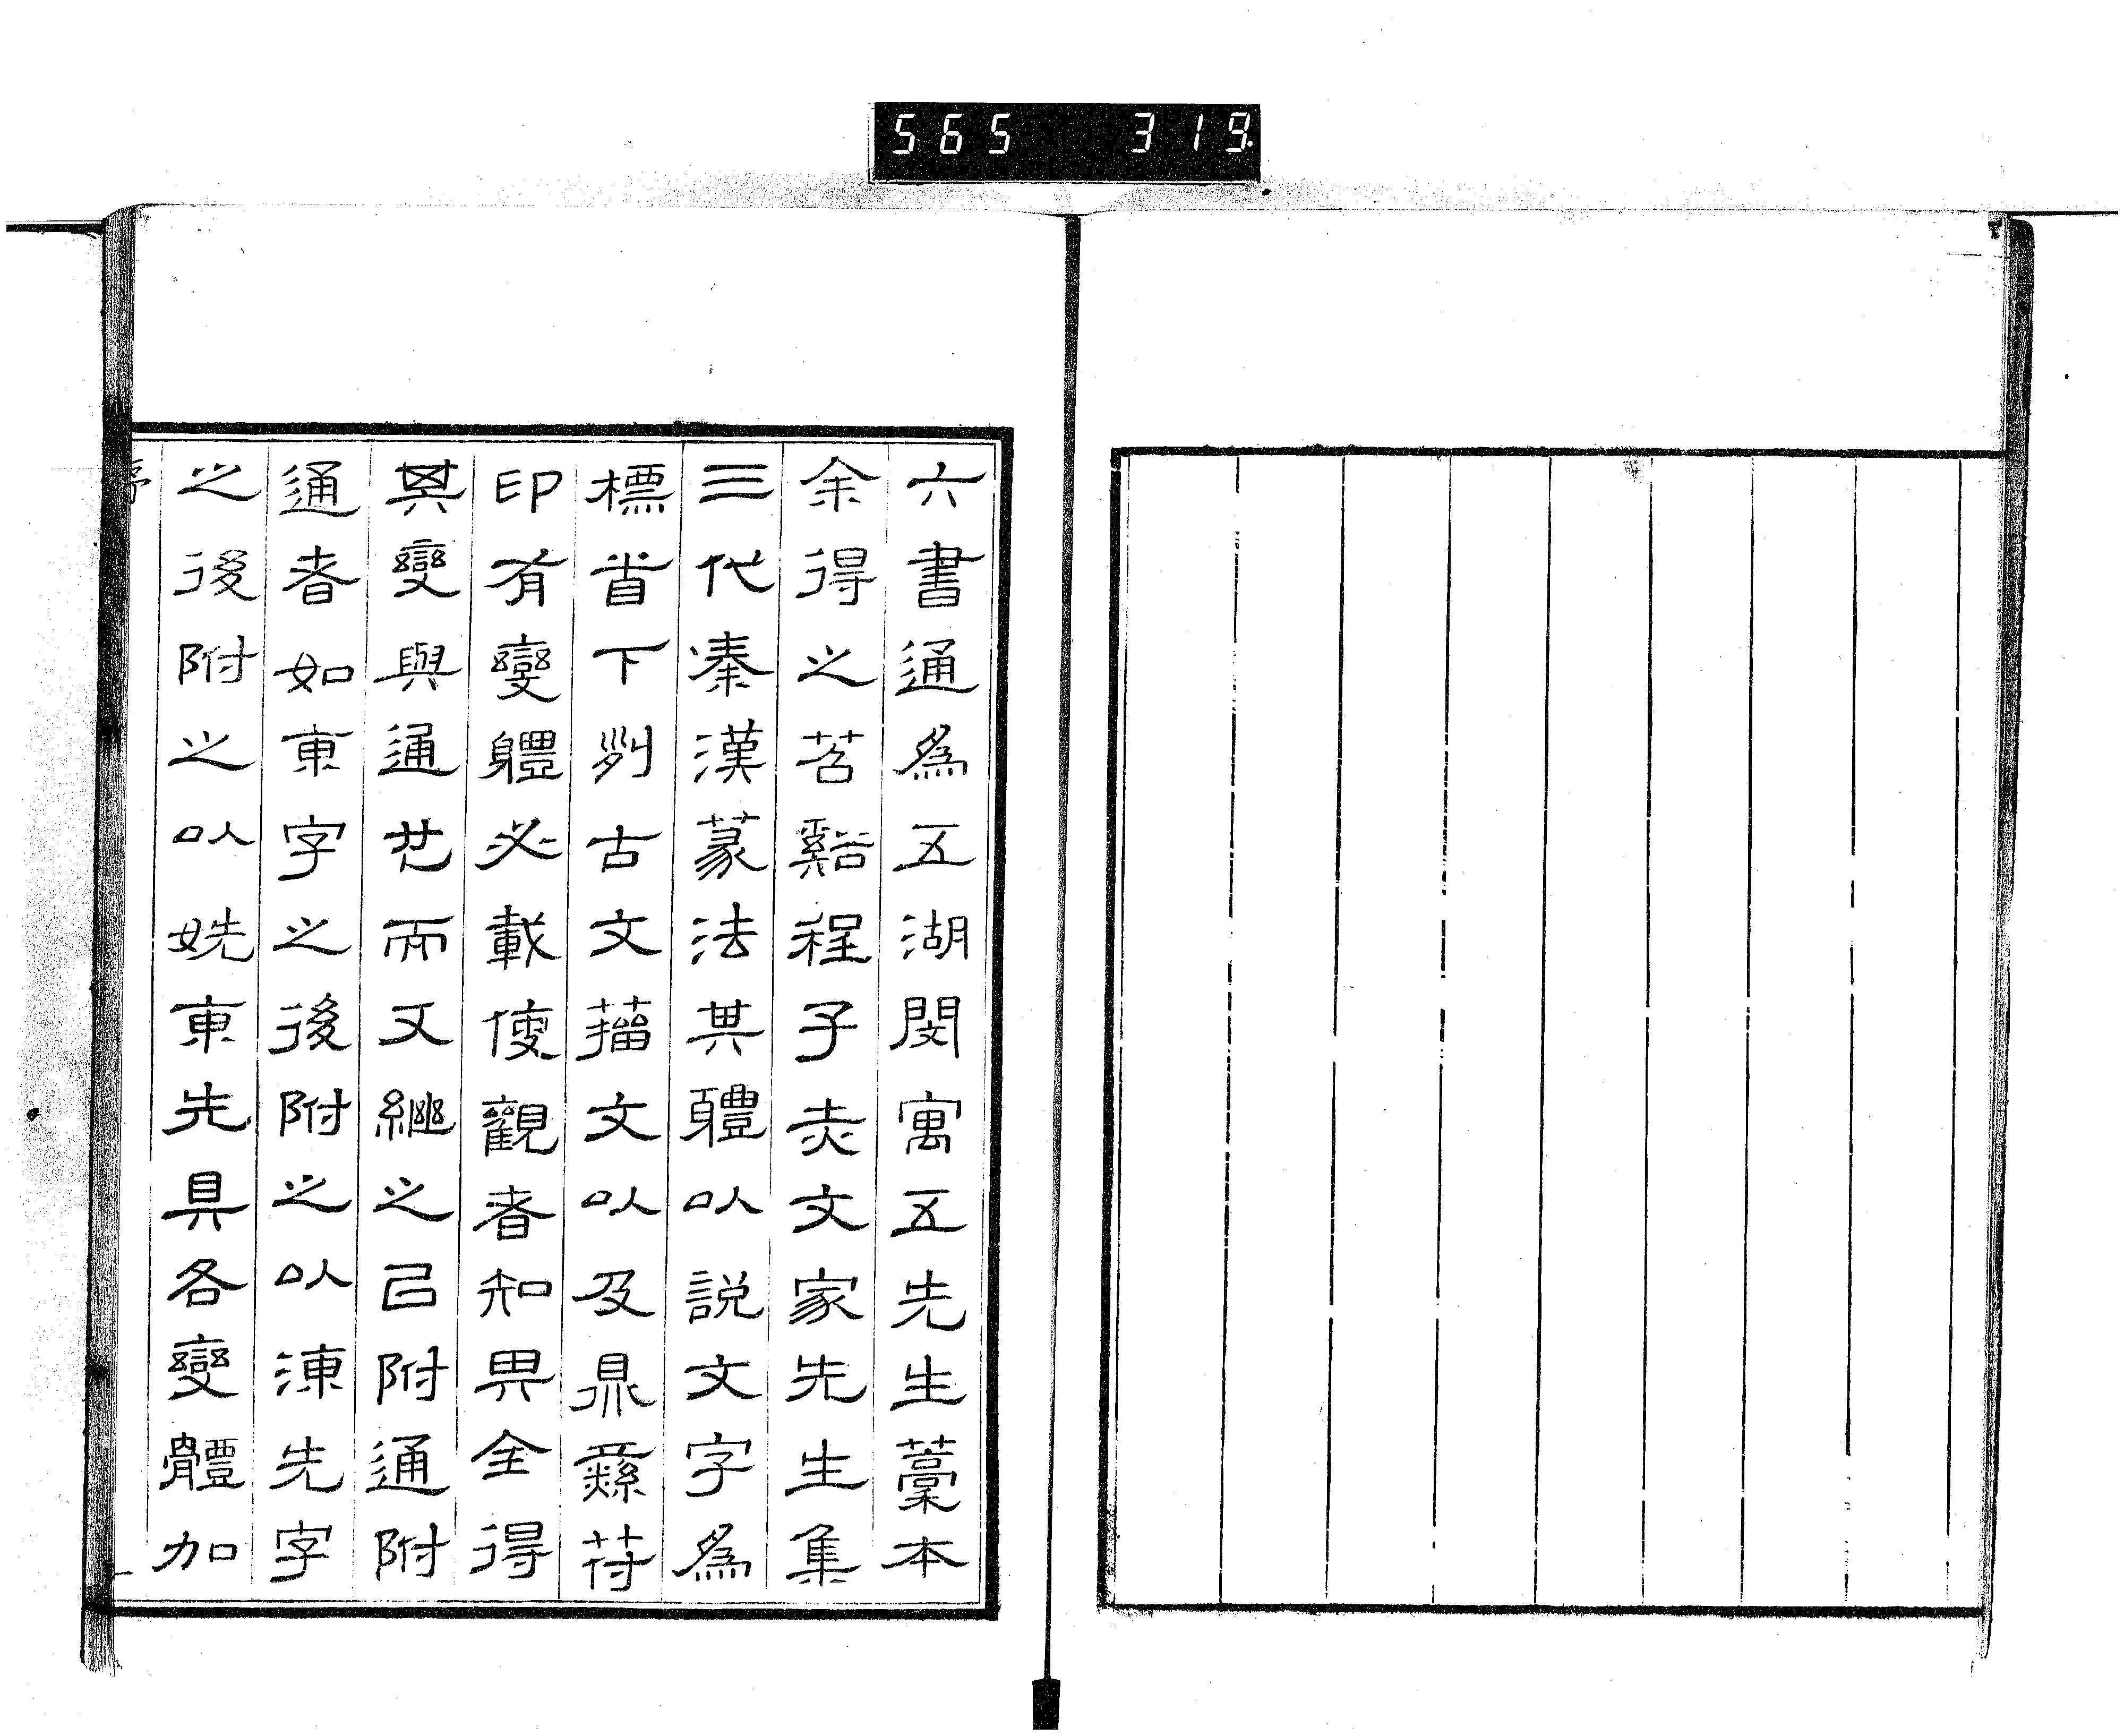 565 319
六書通爲五湖閔寓五先生藁本
余得之苕谿程子赤文家先生集
三代秦漢篆法其軆以説文字爲
標首下列古文籀文以及鼎彝苻
印有變軆必載使觀者知異全得
其變與通艺而又繼之㠯附通附
通者如東字之後附之以涷先字
之後附之以姺東先具各變體加
序
一